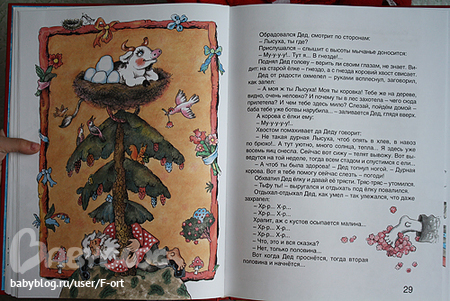 Обрадовался Дед, смотрит по сторонам:
– Лысуха, ты где?
Прислушался – слышит с высоты мычанье доносится:
– Му-у-у-у!.. Тут я... В гнезде!...
Поднял Дед голову – верить ли своим глазам, не знает. Ви-
дит: на старой ёлке – гнездо, а с гнезда коровий хвост свисает.
Дед от радости ожмелел – руками вспеснул, заговорил,
как запел:
– А мож ты Лысуха! Моя ты корова! Тебе же на дереве,
видно, очень неловко? А почему ты в лес захотела – чего сюда
прилетела? И чем тебе здесь мило? Слезай, пойдём домой –
баба тебе уже ботвы нарубила... – заливается Дед, глядя вверх.
А корова с ёлки ему:
– Му-у-у-у-у!..
Хвостом помахивает да Деду говорит:
– Не такая дурная Лысуха, чтоб опять в хлев, в навоз
по брюхо! А тут уютно, много солнца, тепла... Я здесь уже
восемь яиц снесла. Сейчас вот сижу – телят вывожу. Вот вы-
ведутся на той неделе, тогда всем стадом и спустимся с ели...
– А чтоб ты была здорова! – Дед топнул ногой. – Дурная
корова. Вот я тебе помогу сейчас слезть – погоди!
Обхватил Дед ёлку и давай её трясти. Тряс-тряс – утомился.
– Тьфу ты! – выругался и отдыхать под ёлку повалился.
Отдыхал-отдыхал Дед, как умел – так увлежался, что даже
захрапел:
– Хр-р... Х-р...
– Хр-р... Х-р...
Храпит, аж с кустов осыпается малина...
– Хр-р... Х-р...
– Хр-р... Х-р...
– Что, это и вся сказка?
– Нет, только половина...
Вот когда Дед проснётся, тогда вторая
половина и начнётся...
29
babyblog.ru/user/F-ort